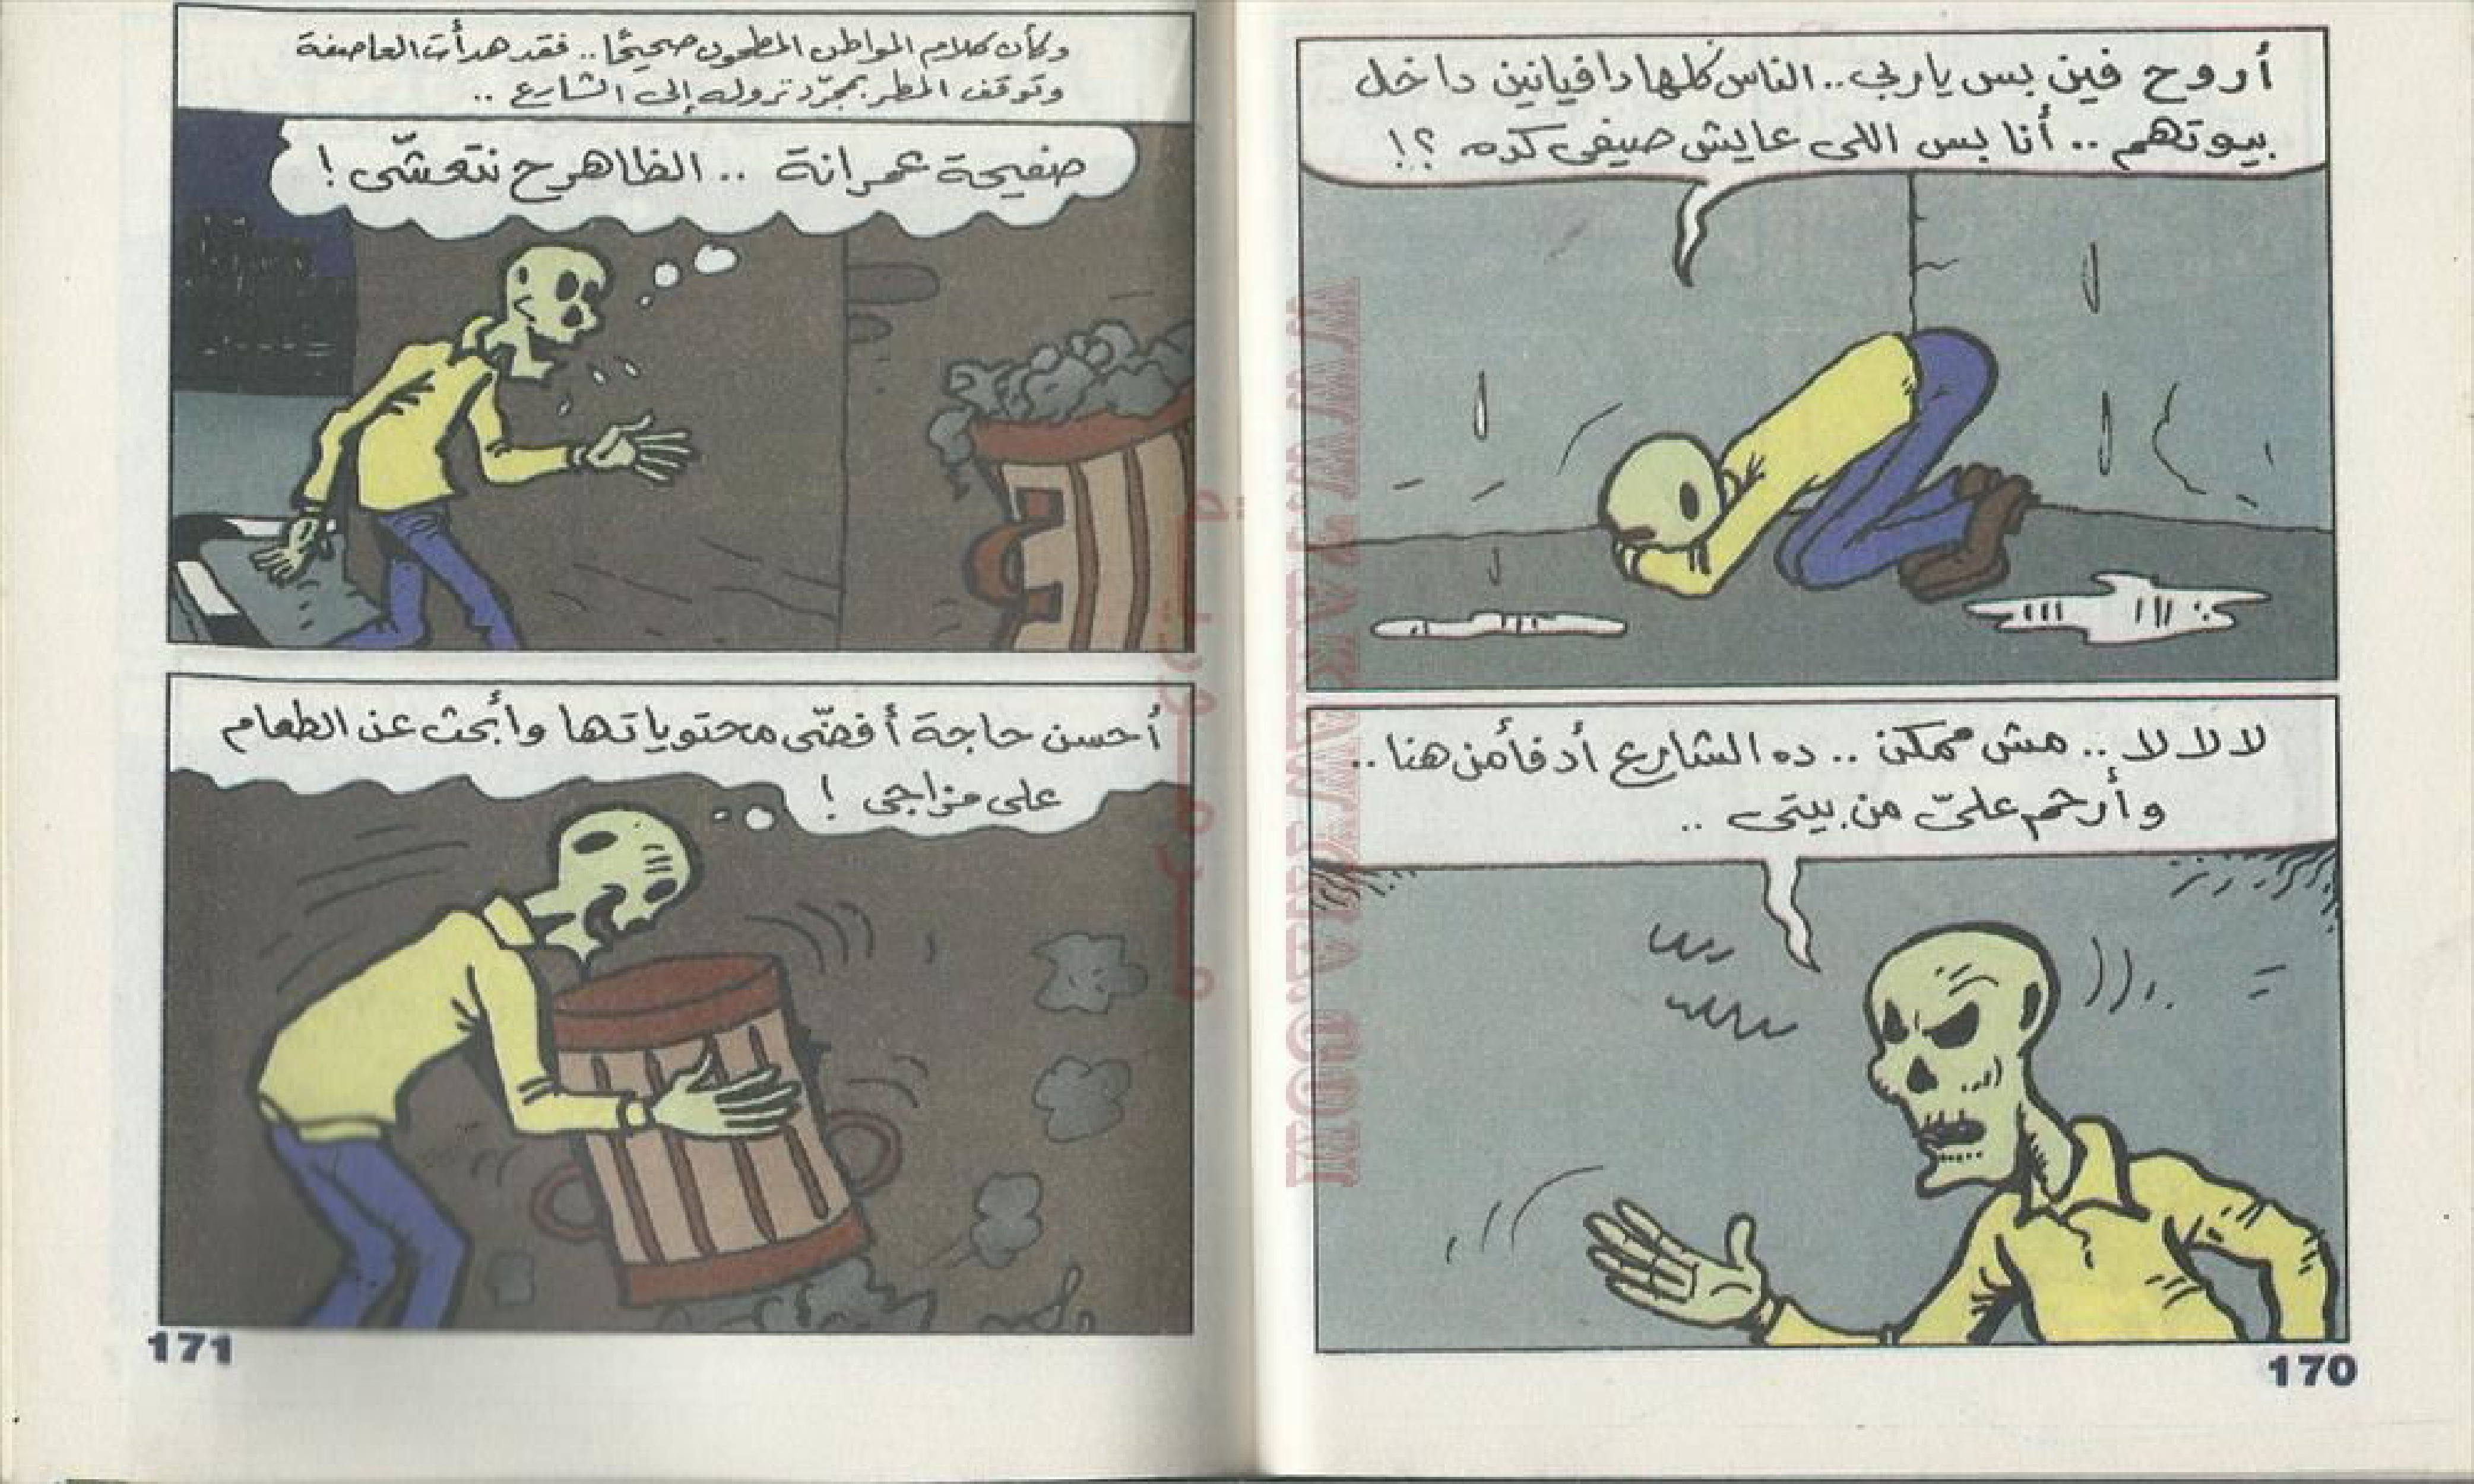 أروح فين بس ياربي.. الناس كلها دافيانين داخل
بيوتهم .. أنا بس اللى عايش صيفى كده ؟!
لا لا لا .. مش ممكن .. ده الشارع أدفأ من هنا ..
وأرحم علىّ من بيتى ..
170
وكأن كلام المواطن المطحون صحيحًا.. فقد هدأت العاصفة
وتوقف المطر بمجرّد نزوله إلى الشارع ..
صفيحة عمرانة .. الظاهر ح نتعشّى !
أحسن حاجة أفضّى محتوياتها وأبحث عن الطعام
على مزاجى !
171